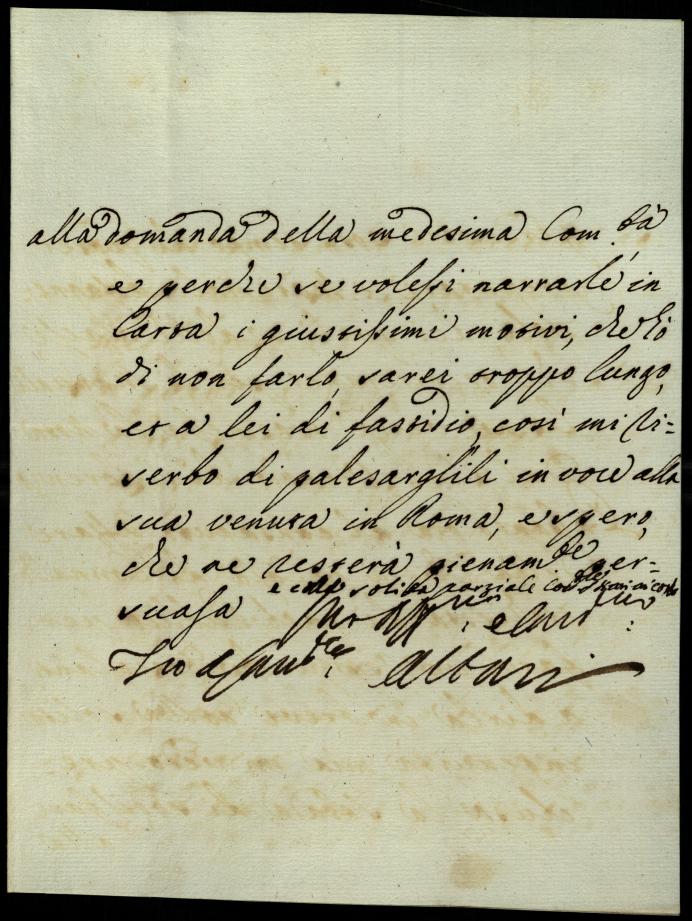 alla domanda della medesima Com.tà
e perche se volessi narrarle in
Carta i giustissimi motivi, che hò
di non farlo, sarei troppo lungo,
et a lei di fastidio, così mi ri=
serbo di palesarglili in voce alla
sua venuta in Roma, e spero,
che ne resterà pienam.te per=
suasa
e colla solita parziale
Albani